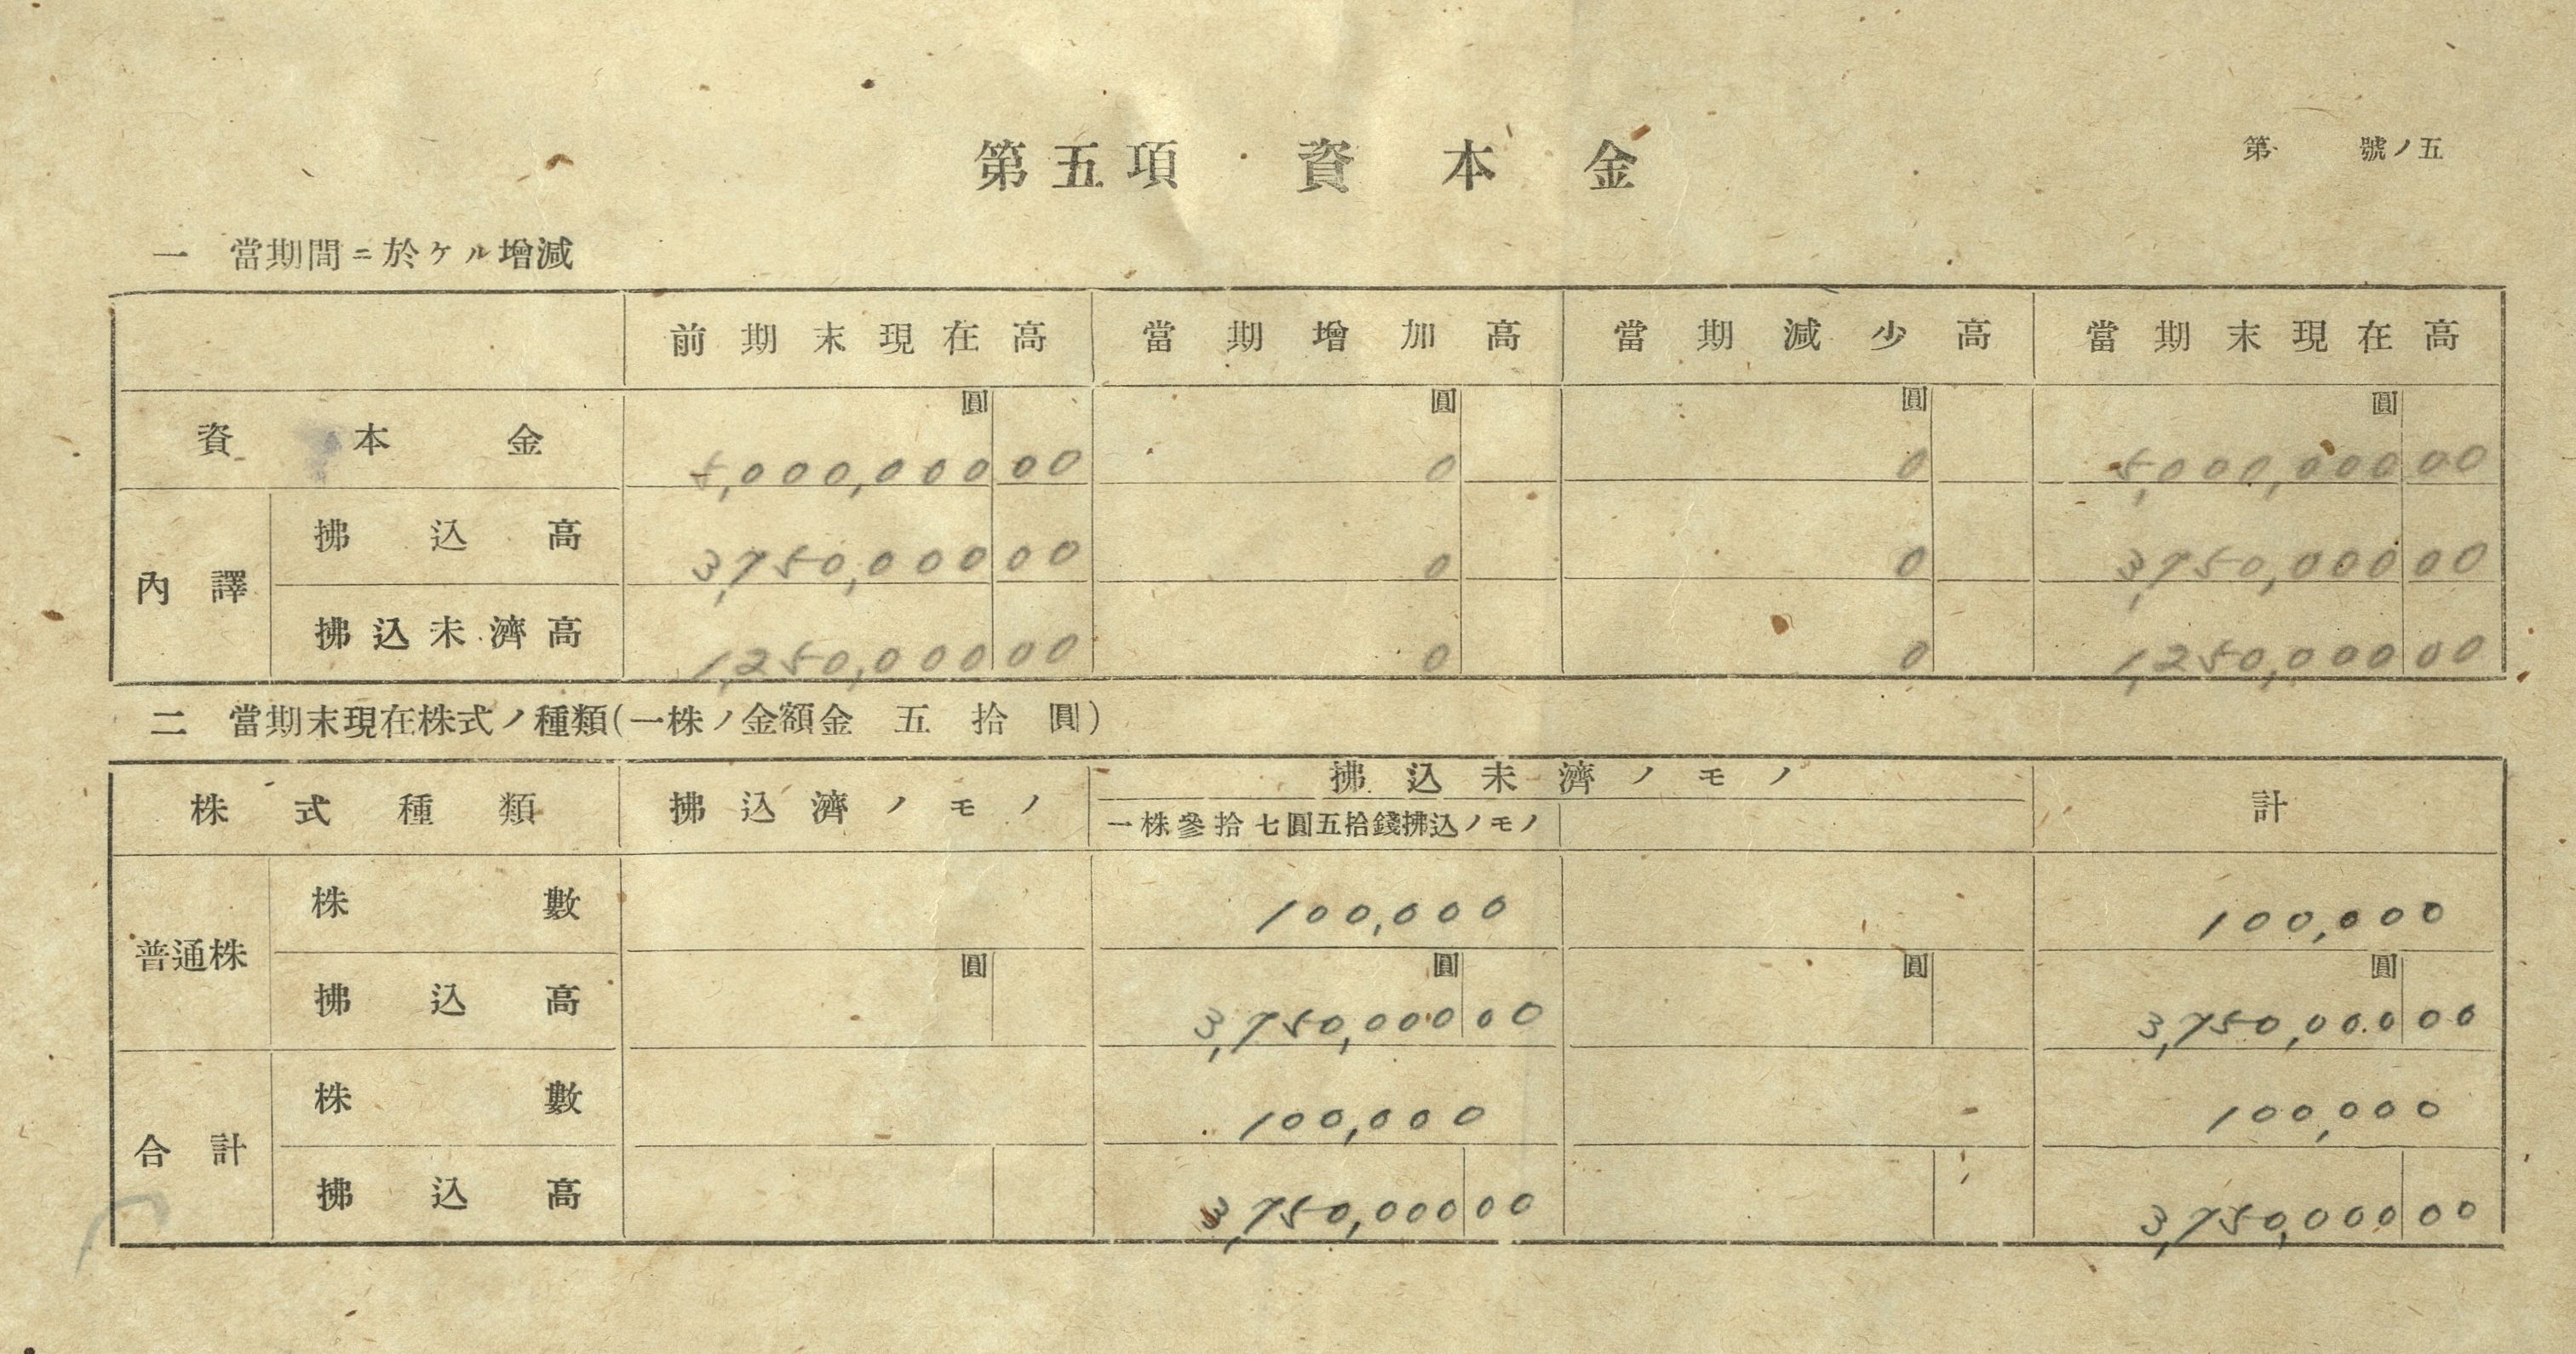 第五項 資本金
第 號ノ五
一 當期間ニ於ケル增減
前期末現在高 當期增加高 當期減少高 當期末現在高
圓 圓 圓 圓
資本金 5,000,000 00 0 0 5,000,000 00
內譯
拂込高 3,750,000 00 0 0 3,750,000 00
拂込未濟高 1,250,000 00 0 0 1,250,000 00
二 當期末現在株式ノ種類(一株ノ金額金五拾圓)
株式種類 拂込濟ノモノ 拂込未濟ノモノ 計
一株參拾七圓五拾錢拂込ノモノ
普通株
株數 100,000 100,000
圓 圓 圓 圓
拂込高 3,750,000 00 3,750,000 00
合計
株數 100,000 100,000
拂込高 3,750,000 00 3,750,000 00